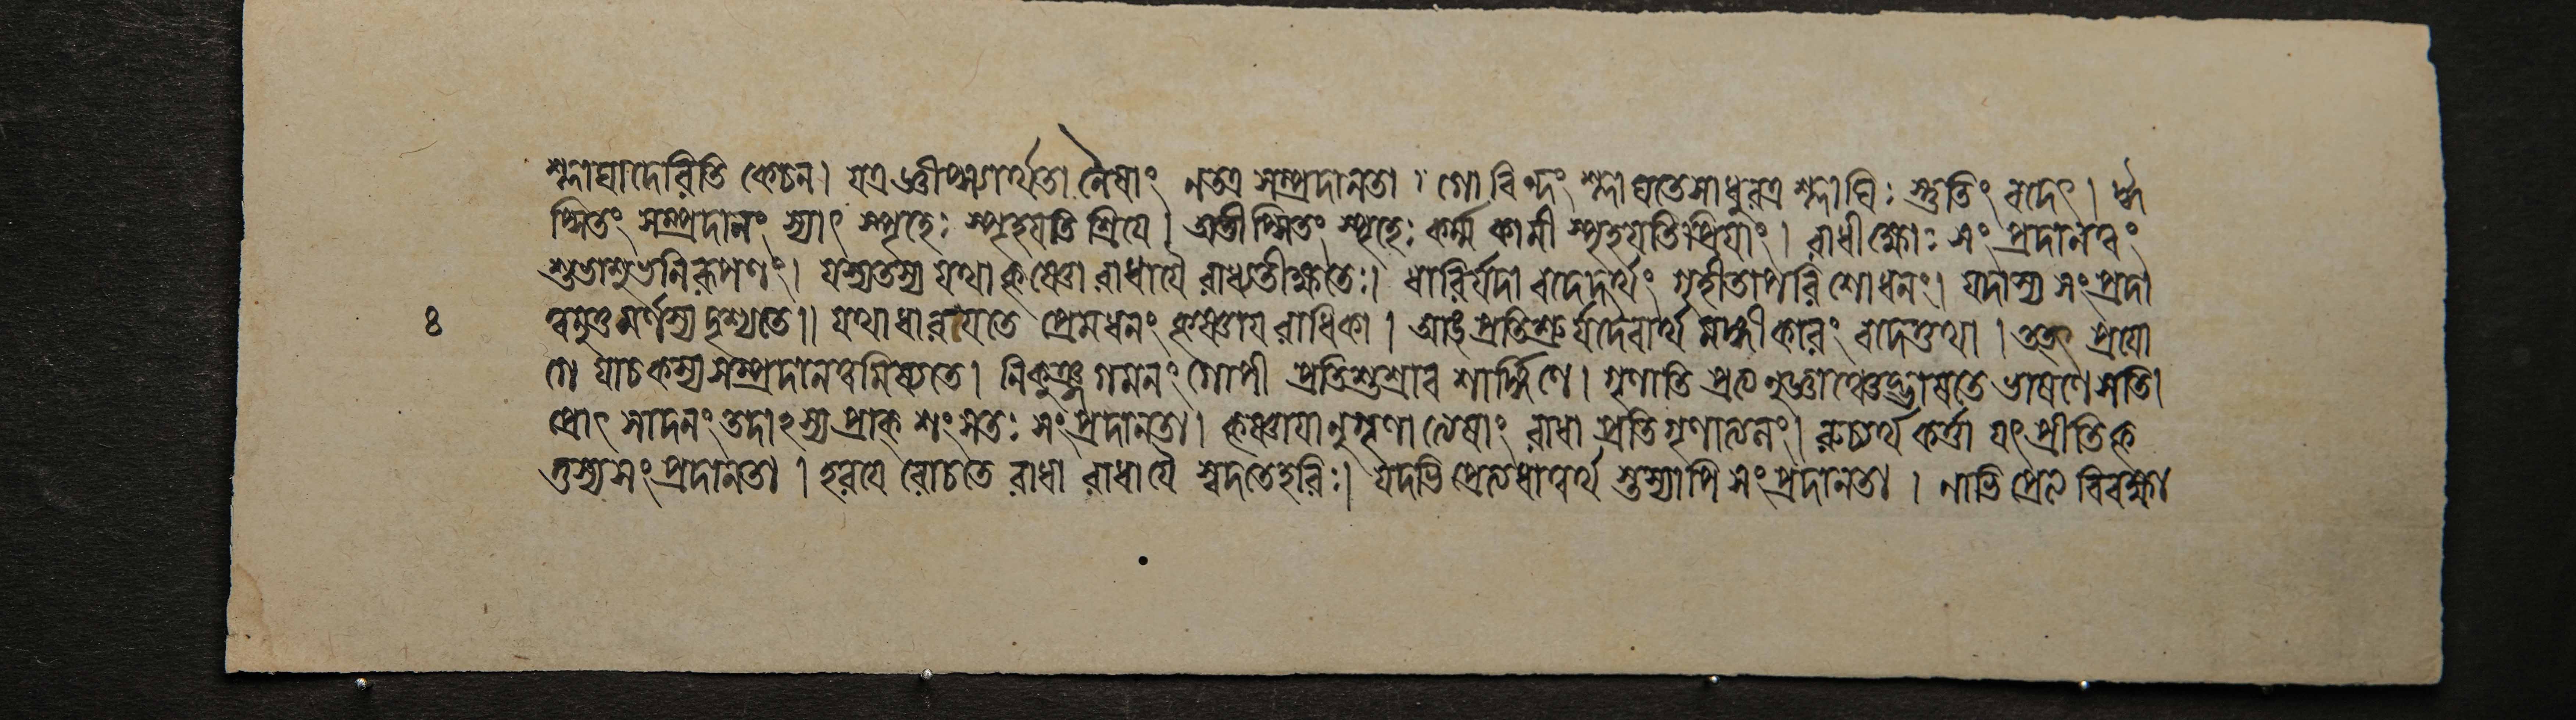 শ্লাঘাদেরিতি কেচন। যত্র জ্ঞীপ্স্যার্থতা নৈষাং নতত্র সম্প্রদানতা। গোবিন্দং শ্লাঘতেসাধুরত্র শ্লাঘিঃ স্তুতিং বদেৎ। ঈ
প্সিতং সম্প্রদানং স্যাৎ স্পৃহেঃ স্পৃহয়তি শ্রিয়ে। অতীপ্সিতং স্পৃহেঃ কর্ম্ম কামী স্পৃহয়তিপ্রিয়াং। রাধীক্ষোঃ সংপ্রদানত্বং
শুভাশুভনিরূপণং। যস্যতস্য যথা কৃষ্ণো রাধায়ৈ রাধ্যতীক্ষতেঃ। ধারির্যদা বদেদর্থং গৃহীতাপরিশোধনং। যদাস্য সংপ্রদা
৪ ত্বমুত্তমর্ণস্য দৃশ্যতে॥ যথাধারয়তে প্রেমধনং কৃষ্ণায় রাধিকা। আঙ্ প্রতিশ্রুর্যদৈবার্থ মঙ্গীকারং বদেত্তথা। তত্র প্রযো
গে যাচকস্যসম্প্রদানত্বমিষ্যতে। নিকুঞ্জ গমনং গোপী প্রতিশুশ্রাব শার্ঙ্গিণে। গৃণাতি প্রত্যনুজ্ঞা ভাষতে ভাষণে সতি।
প্রোৎসাদনং তদাঽস্য প্রাক্ শংসতঃ সংপ্রদানতা। কৃষ্ণায়ানুগৃণা রাধা প্রতিগৃণাত্যলং। রুচ্যর্থ কর্ত্তা যৎপ্রীতিকৃ
ত্তস্যসংপ্রদানতা। হরয়ে রোচতে রাধা রাধায়ৈ স্বদতেহরিঃ। যদভিপ্রেত্যধাত্বর্থ স্তস্যাপি সংপ্রদানতা। নাভিপ্রেত্য বিবক্ষো